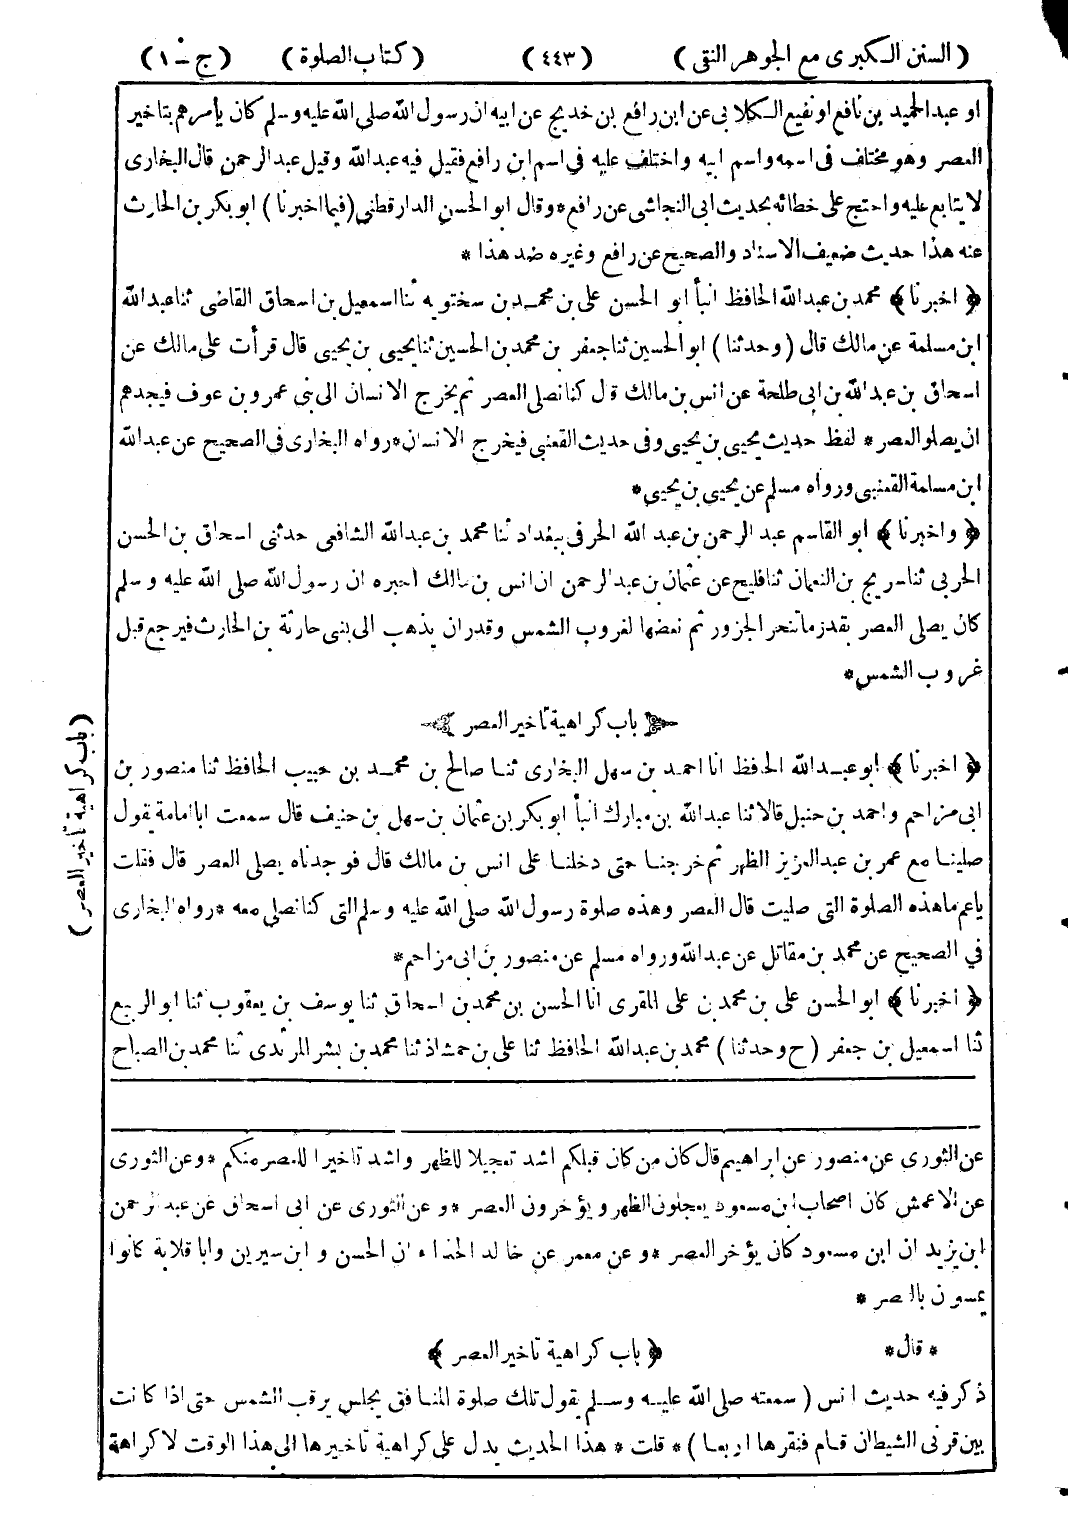 (السنن الكبرى مع الجوهر النقى) (٤٤٣) (كتاب الصلوة) (ج - ١)
او عبد الحميد بن نافع او نفيع الكلابى عن ابن رافع بن خديج عن ابيه ان رسول الله صلى الله عليه وسلم كان يأمرهم بتاخير
العصر وهو مختلف فى اسمه واسم ابيه واختلف عليه فى اسم ابن رافع فقيل فيه عبد الله وقيل عبد الرحمن قال البخارى
لا يتابع عليه واحتج على خطائه بحديث ابى النجاشى عن رافع * وقال ابو الحسن الدارقطنى (فيما اخبرنا) ابو بكر بن الحارث
عنه هذا حديث ضعيف الاسناد والصحيح عن رافع وغيره ضد هذا *
﴿ اخبرنا ﴾ محمد بن عبد الله الحافظ انبأ ابو الحسن على بن محمد بن سختويه ثنا اسمعيل بن اسحاق القاضى ثنا عبد الله
ابن مسلمة عن مالك قال (وحدثنا) ابو الحسين ثنا جعفر بن محمد بن الحسين ثنا يحيى بن يحيى قال قرأت على مالك عن
اسحاق بن عبد الله بن ابى طلحة عن انس بن مالك قال كنا نصلى العصر ثم يخرج الانسان الى بنى عمرو بن عوف فيجدهم
ان يصلو العصر * لفظ حديث يحيى بن يحيى وفى حديث القعنبى فيخرج الانسان * رواه البخارى فى الصحيح عن عبد الله
ابن مسلمة القعنبى ورواه مسلم عن يحيى بن يحيى *
﴿ واخبرنا ﴾ ابو القاسم عبد الرحمن بن عبد الله الحرفى ببغداد ثنا محمد بن عبد الله الشافعى حدثنى اسحاق بن الحسن
الحربى ثنا سريج بن النعمان ثنا فليح عن عثمان بن عبد الرحمن ان انس بن مالك اخبره ان رسول الله صلى الله عليه وسلم
كان يصلى العصر بقدر ما تنحر الجزور ثم نعضها لغروب الشمس وقدر ان يذهب الى بنى حارثة بن الحارث فيرجع قبل
غروب الشمس *
باب كراهية تاخير العصر
﴿ اخبرنا ﴾ ابو عبد الله الحافظ انا احمد بن سهل البخارى ثنا صالح بن محمد بن حبيب الحافظ ثنا منصور بن
ابى مزاحم واحمد بن حنبل قالا ثنا عبد الله بن مبارك انبأ ابو بكر بن عثمان بن سهل بن حنيف قال سمعت ابا امامة يقول
صلينا مع عمر بن عبد العزيز الظهر ثم خرجنا حتى دخلنا على انس بن مالك قال فوجدناه يصلى العصر قال فقلت
ياعم ما هذه الصلوة التى صليت قال العصر وهذه صلوة رسول الله صلى الله عليه وسلم التى كنا نصلى معه * رواه البخارى
فى الصحيح عن محمد بن مقاتل عن عبد الله ورواه مسلم عن منصور بن ابى مزاحم *
﴿ اخبرنا ﴾ ابو الحسن على بن محمد بن على المقرى انا الحسن بن محمد بن اسحاق ثنا يوسف بن يعقوب ثنا ابو الربيع
ثنا اسمعيل بن جعفر (ح وحدثنا) محمد بن عبد الله الحافظ ثنا على بن حمشاذ ثنا محمد بن بشر المرثدى ثنا محمد بن الصباح
(باب كراهية تاخير العصر)
عن الثورى عن منصور عن ابراهيم قال كان من كان قبلكم اشد تعجيلا للظهر واشد تاخيرا للعصر منكم * وعن الثورى
عن الاعمش كان اصحاب ابن مسعود يعجلون الظهر ويؤخرون العصر * وعن الثورى عن ابى اسحاق عن عبد الرحمن
ابن يزيد ان ابن مسعود كان يؤخر العصر * وعن معمر عن خالد الحذاء ان الحسن و ابن سيرين وابا قلابة كانوا
يمسون بالعصر *
* قال * ﴿ باب كراهية تاخير العصر ﴾
ذكر فيه حديث انس (سمعته صلى الله عليه وسلم يقول تلك صلوة المنافق يجلس يرقب الشمس حتى اذا كانت
بين قرنى الشيطان قام فنقرها اربعا) * قلت * هذا الحديث يدل على كراهية تاخيرها الى هذا الوقت لا كراهة